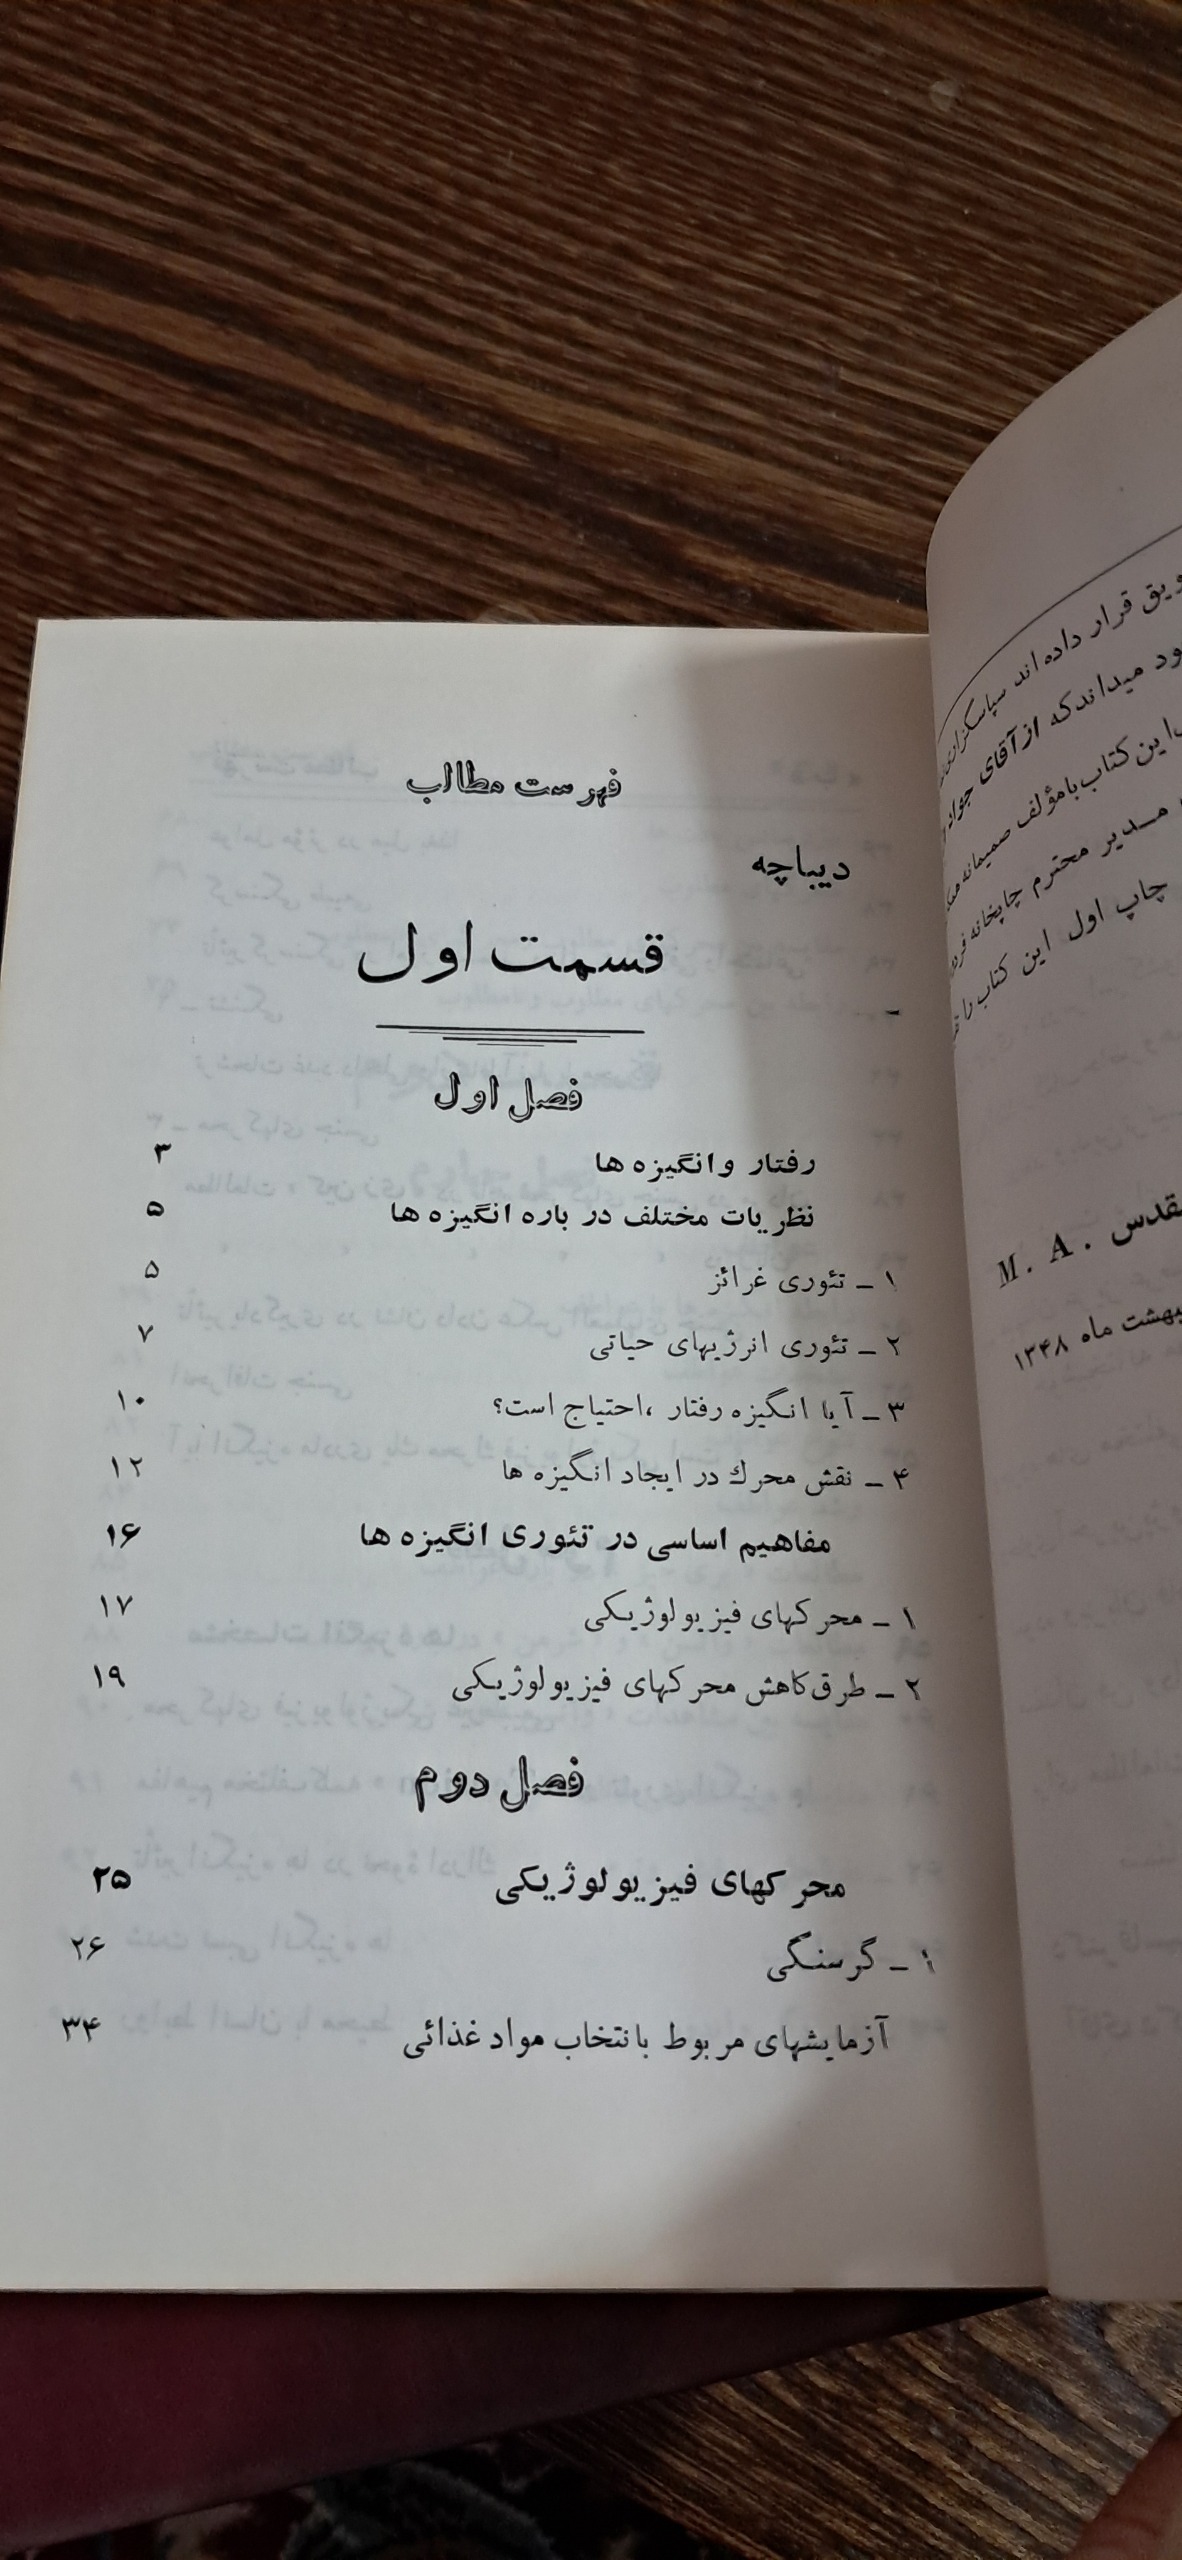 فهرست مطالب
دیباچه
قسمت اول
فصل اول
رفتار و انگیزه ها ۳
نظریات مختلف در باره انگیزه ها ۵
۱ ـ تئوری غرائز ۵
۲ ـ تئوری انرژیهای حیاتی ۷
۳ ـ آیا انگیزه رفتار ،احتیاج است؟ ۱۰
۴ ـ نقش محرك در ایجاد انگیزه ها ۱۲
مفاهیم اساسی در تئوری انگیزه ها ۱۶
۱ ـ محرکهای فیزیولوژیکی ۱۷
۲ ـ طرق کاهش محرکهای فیزیولوژیکی ۱۹
فصل دوم
محرکهای فیزیولوژیکی ۲۵
۱ ـ گرسنگی ۲۶
آزمایشهای مربوط بانتخاب مواد غذائی ۳۴
قرار داده اند سپاسگزاری
میداندکه از آقای جواد
این کتاب بامؤلف صمیمانه
مدیر محترم چاپخانه
چاپ اول این کتاب را
M. A.
ماه ۱۳۴۸